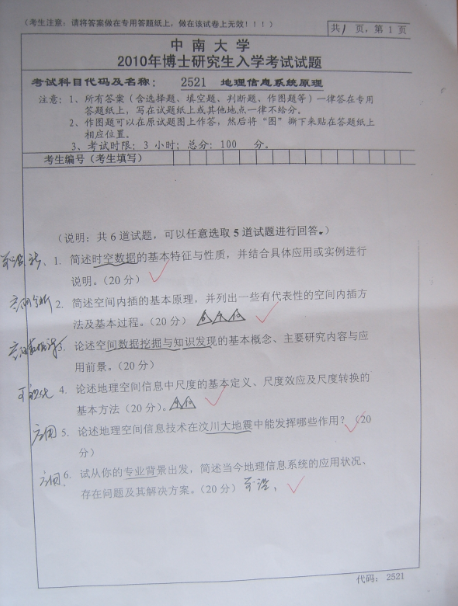 (考生注意：请将答案做在专用答题纸上，做在该试卷上无效！！！)
共1页，第1页
中南大学
2010年博士研究生入学考试试题
考试科目代码及名称： 2521 地理信息系统原理
注意：1、所有答案（含选择题、填空题、判断题、作图题等）一律答在专用
答题纸上，写在试题纸上或其他地点一律不给分。
2、作图题可以在原试题图上作答，然后将“图”撕下来贴在答题纸上
相应位置。
3、考试时限：3小时；总分：100 分。
考生编号（考生填写）
(说明：共6道试题，可以任意选取5道试题进行回答。)
1. 简述时空数据的基本特征与性质，并结合具体应用或实例进行
说明。(20分)
2. 简述空间内插的基本原理，并列出一些有代表性的空间内插方
法及基本过程。(20分)
3. 论述空间数据挖掘与知识发现的基本概念、主要研究内容与应
用前景。(20分)
可视化 4. 论述地理空间信息中尺度的基本定义、尺度效应及尺度转换的
基本方法(20分)。
应用 5. 论述地理空间信息技术在汶川大地震中能发挥哪些作用？(20
分)
应用 6. 试从你的专业背景出发，简述当今地理信息系统的应用状况、
存在问题及其解决方案。(20分)
代码：2521